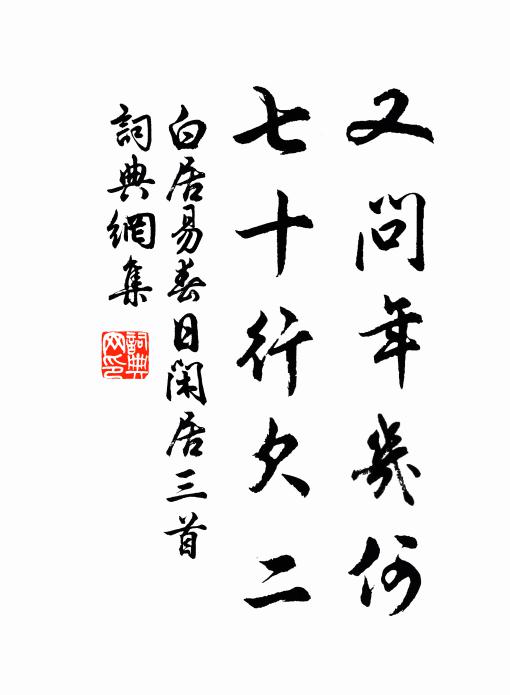 又問年幾何
七十行欠二
白居易春日閑居三首
詞典網集
詞典
网印